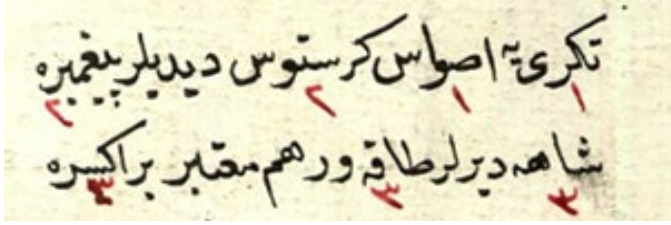 تكرى يه اصواس كرستوس ديديلر پيغمبره
١ ١ ٢ ٢
شاهه ديرلر طاقه ور هم معتبر براكسره
٣ ٣ ٣